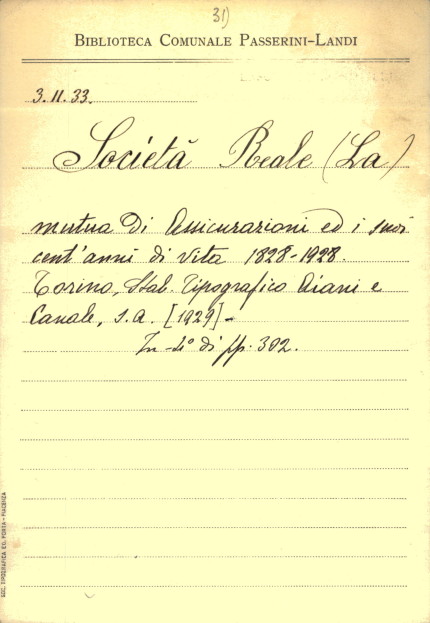 31)
BIBLIOTECA COMUNALE PASSERINI-LANDI
3.11.33.
Società Reale (La)
mutua di Assicurazioni ed i suoi
cent'anni di vita 1828-1928.
Torino, Stab. Tipografico Ajani e
Canale, s.a. [1929] -
In-4° di pp. 302.
SOC. TIPOGRAFICA ED. PORTA - PIACENZA